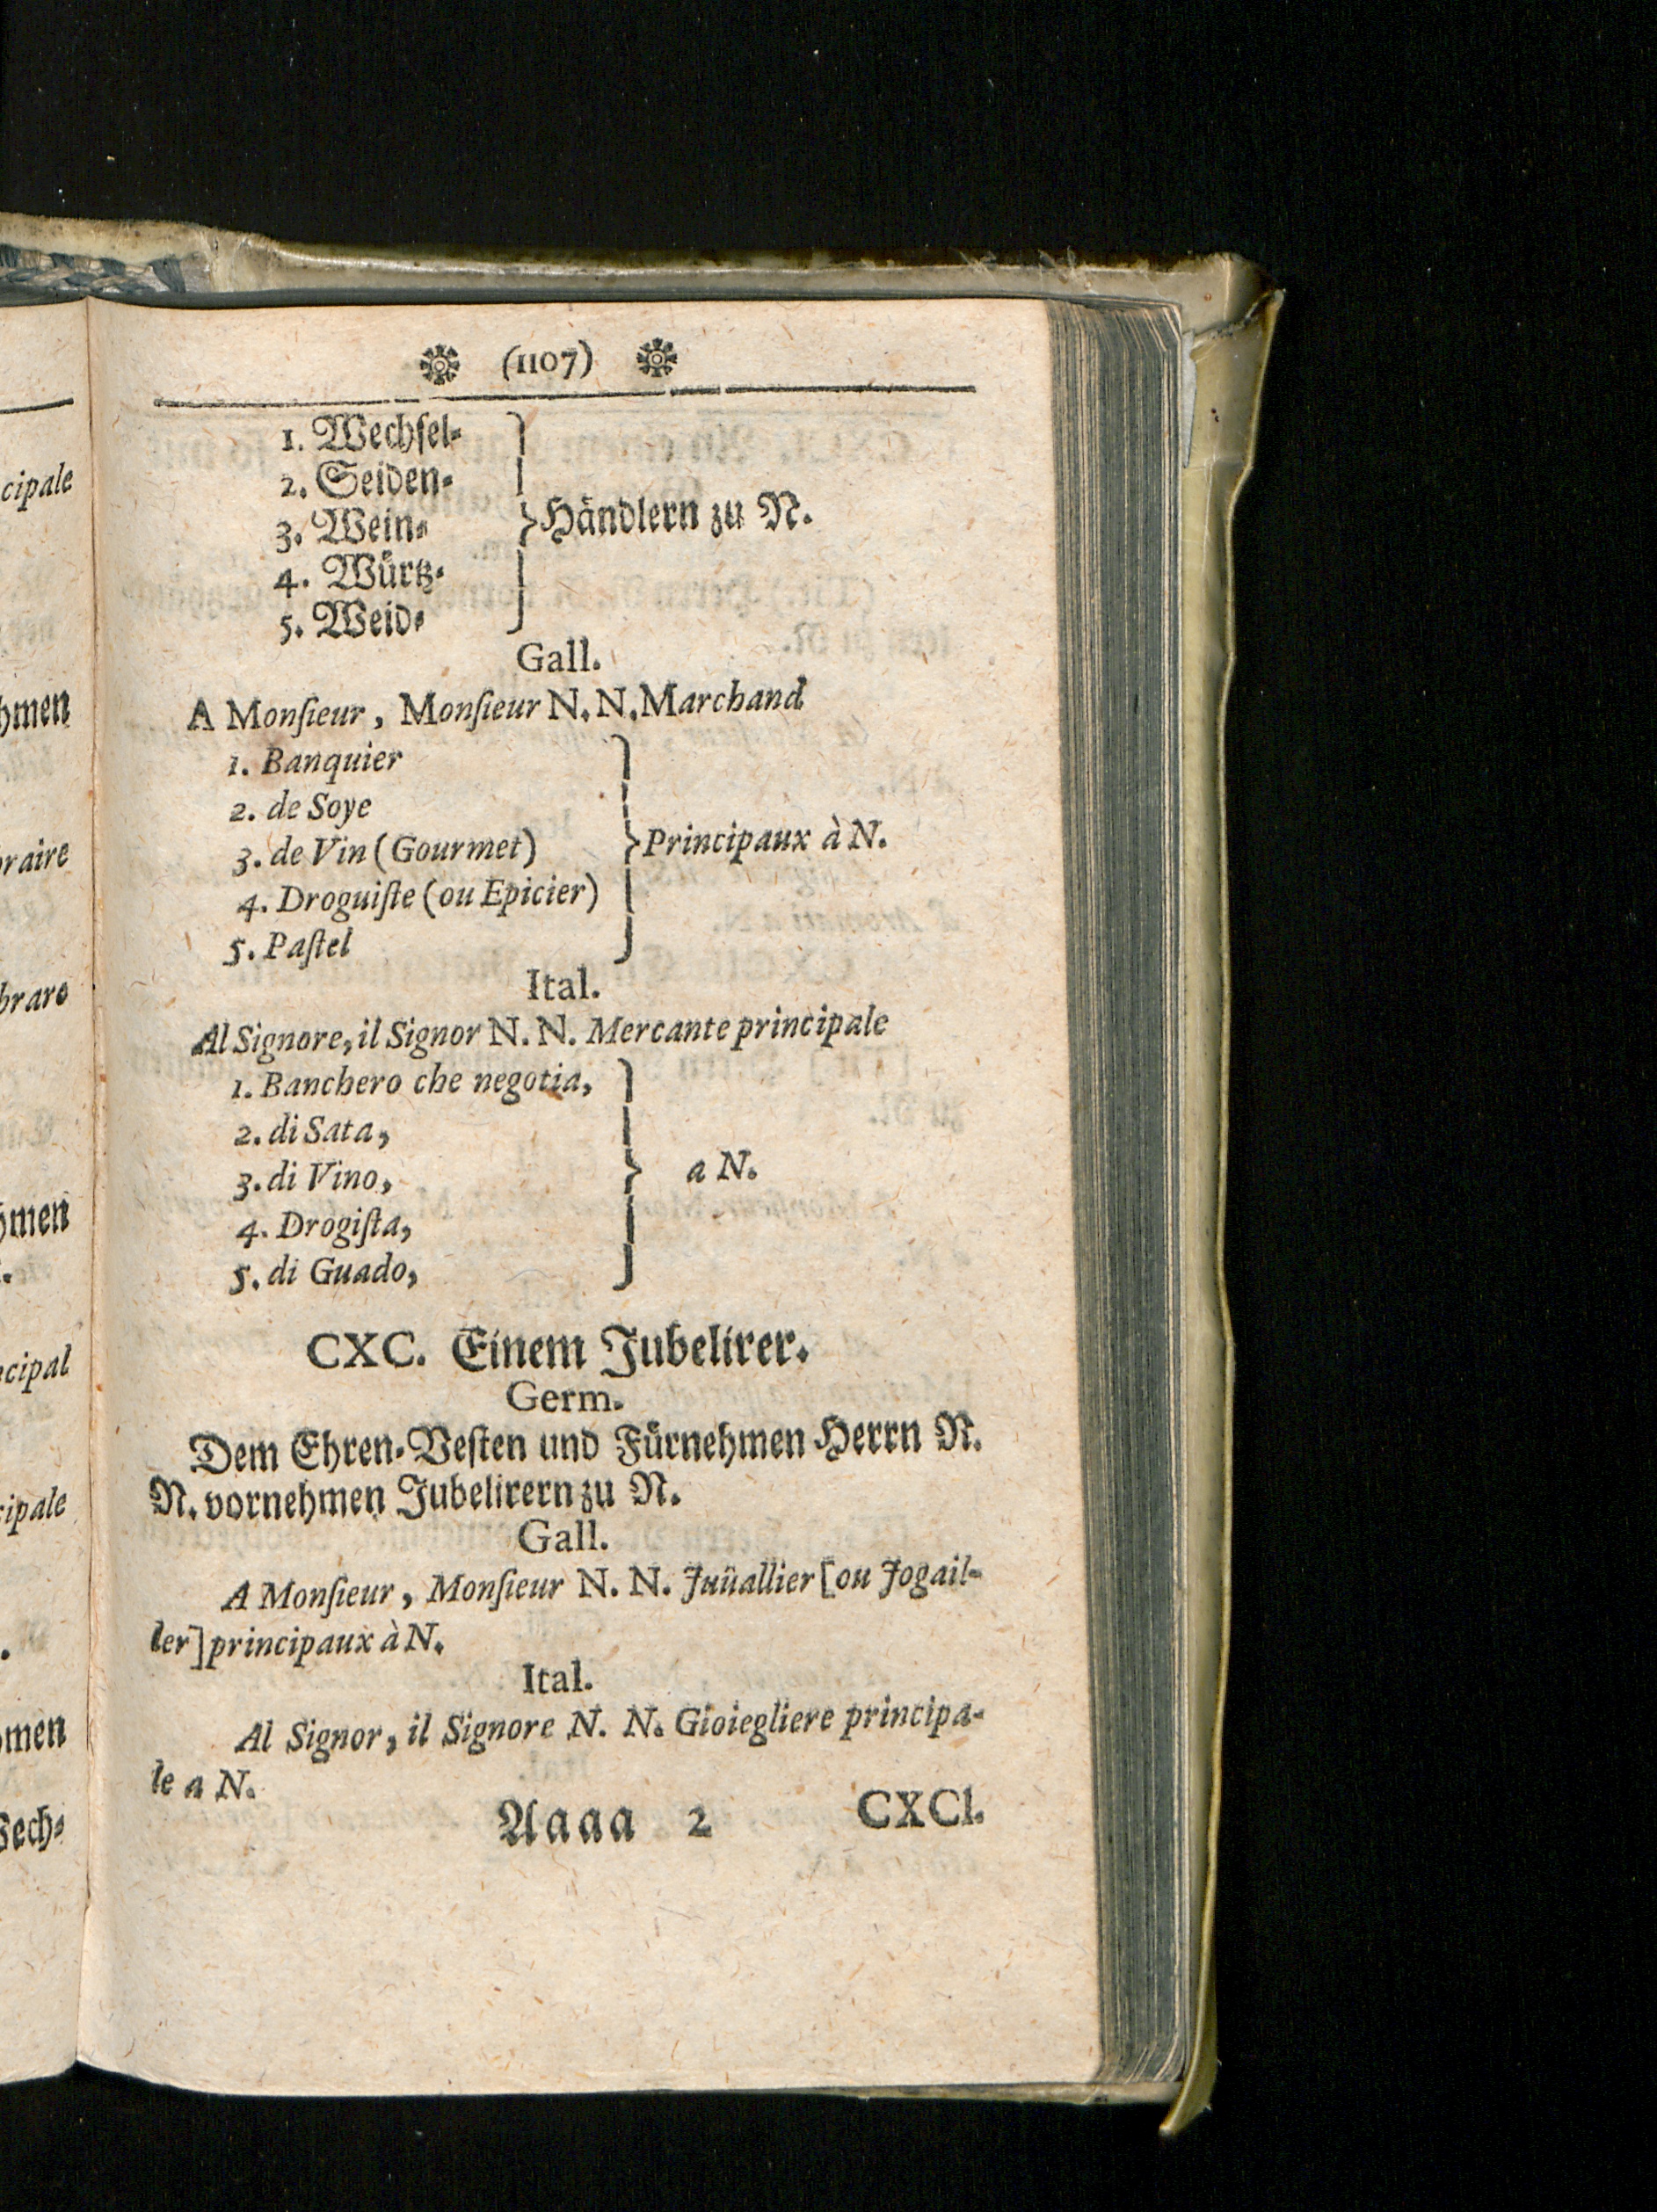 (1107)
1. Wechſel-
2. Seiden-
3. Wein-
4. Würtz-
5. Weid-
Händlern zu N.
Gall.
A Monſieur, Monſieur N. N. Marchand
1. Banquier
2. de Soye
3. de Vin (Gourmet)
4. Droguiſte (ou Epicier)
5. Paſtel
Principaux à N.
Ital.
Al Signore, il Signor N. N. Mercante principale
1. Banchero che negotia,
2. di Sata,
3. di Vino,
4. Drogiſta,
5. di Guado,
a N.
CXC. Einem Jubelirer.
Germ.
Dem Ehren-Veſten und Fürnehmen Herrn N.
N. vornehmen Jubelirern zu N.
Gall.
A Monſieur, Monſieur N. N. Juüallier [ou Jogail-
ler] principaux à N.
Ital.
Al Signor, il Signore N. N. Gioiegliere principa-
le a N.
Aaaa 2 CXCI.
cipale
hmen
raire
brare
hmen
cipal
cipale
hmen
Wech-